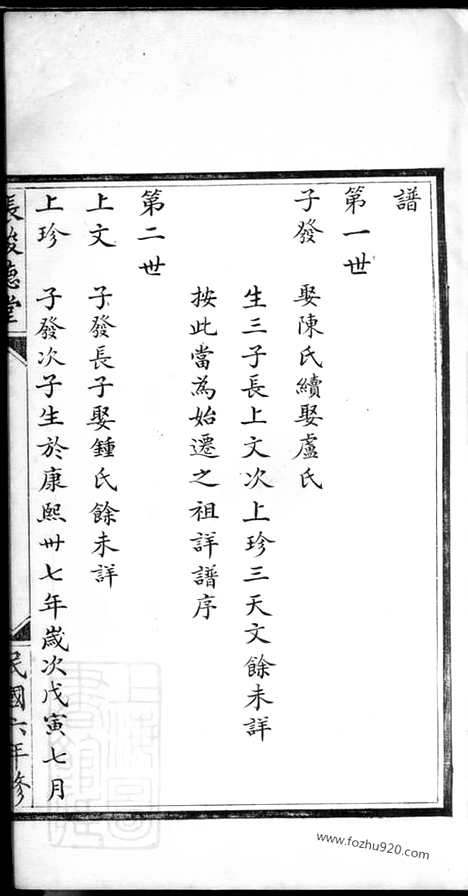 譜
第一世
子發 娶陳氏續娶盧氏
生三子長上文次上珍三天文餘未詳
按此當為始遷之祖詳譜序
第二世
上文 子發長子娶鍾氏餘未詳
上珍 子發次子生於康熙卅七年歲次戊寅七月
德堂
民國六年修
www.fozhu920.com